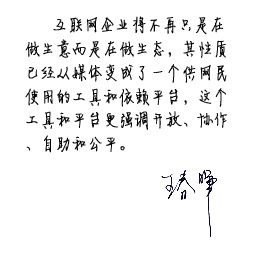 互联网企业将不再只是在
做生意而是在做生态，其性质
已经从媒体变成了一个供网民
使用的工具和依赖平台，这个
工具和平台更强调开放、协作
、自助和公平。
王春晖